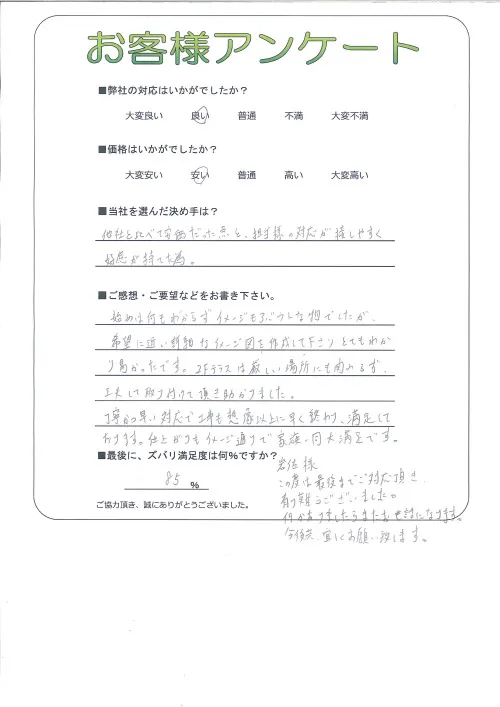 お客様アンケート
■弊社の対応はいかがでしたか？
大変良い 良い 普通 不満 大変不満
■価格はいかがでしたか？
大変安い 安い 普通 高い 大変高い
■当社を選んだ決め手は？
他社と比べて安価だった点と、担当様の対応が接しやすく
好感が持てた為。
■ご感想・ご要望などをお書き下さい。
始めは何もわからずイメージもあいまいな物でしたが、
希望に近い詳細なイメージ図を作成して下さりとてもわか
り易かったです。2Fテラスは厳しい場所にも関わらず、
工夫して取り付けて頂き助かりました。
丁寧かつ早い対応で工事も想像以上に早く終わり、満足して
おります。仕上がりもイメージ通りで家族一同大満足です。
■最後に、ズバリ満足度は何％ですか？
85 %
ご協力頂き、誠にありがとうございました。
岩佐様
この度は最後までご対応頂き
有り難うございました。
何かありましたらまたお世話になります。
今後共、宜しくお願い致します。